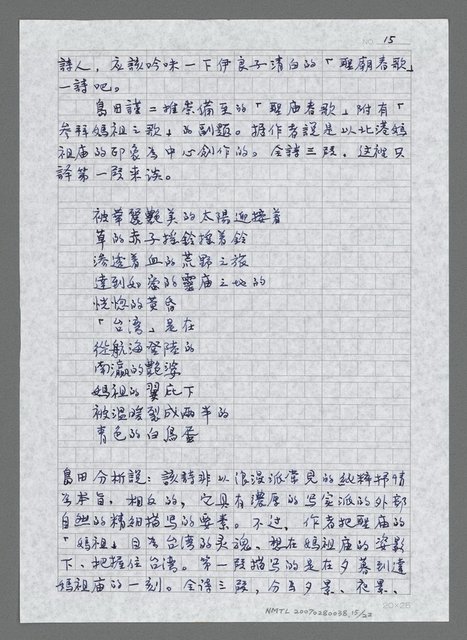 NO. 15
詩人，应該吟味一下伊良子清白的「聖廟春歌」
一詩吧。
島田謹二推崇備至的「聖庙春歌」附有「
参拜媽祖之歌」的副題。据作者說是以北港媽
祖庙的印象為中心創作的。全詩三段，这裡只
譯第一段來談。
被華麗艷美的太陽迎接着
草的赤子搖鈴搖着鈴
滲透着血的荒野之旅
達到如夢的靈庙之地的
恍惚的黄昏
「台湾」是在
從航海登陸的
南瀛的艷姿
媽祖的翼庇下
被溫暖裂成兩半的
青色的白鳥蛋
島田分析說：該詩非以浪漫派常見的純粹抒情
為本旨，相反的，它具有濃厚的写实派的外部
自然的精細描写的要素。不过，作者把聖庙的
「媽祖」目為台湾的灵魂、想在媽祖庙的姿影
下、把握住台湾。第一段描写的是在夕暮到達
媽祖庙的一刻。全詩三段，分為夕景、夜景、
20×25
NMTL 20070280038, 15/22